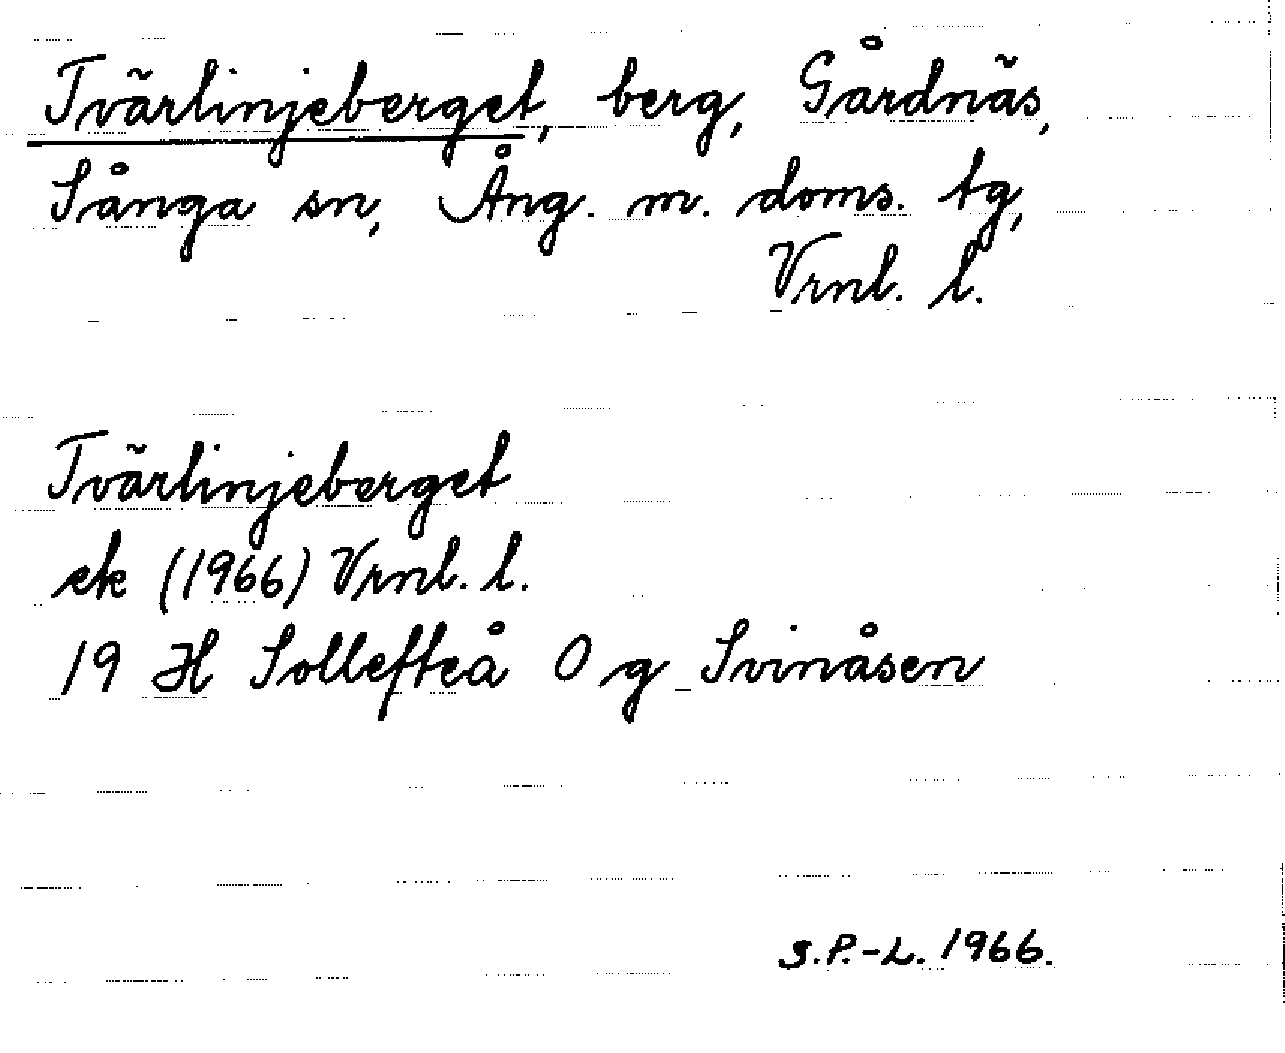 Tvärlinjeberget, berg, Gårdnäs,
Sånga sn, Ång. m. doms. tg,
Vrnl. l.
Tvärlinjeberget
ek (1966) Vrnl. l.
19 H Sollefteå O g Svinåsen
S.P.-L. 1966.